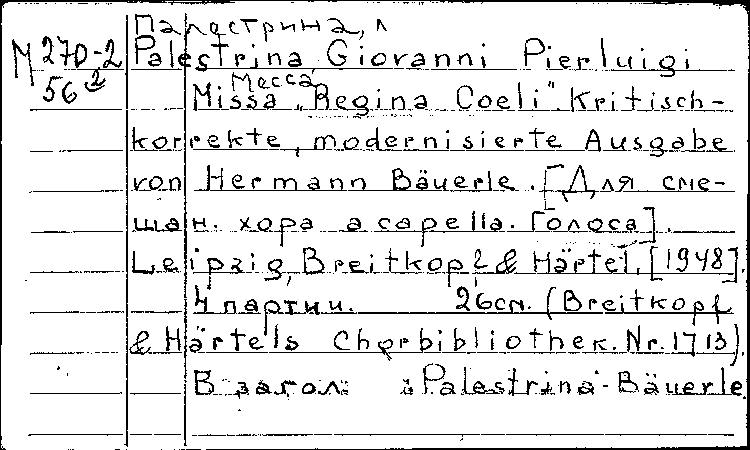 Палестрина, Л
М 270-2 Palestrina Giovanni Pierluigi
56² Месса
Missa „Regina Coeli". Kritisch-
korrekte, modernisierte Ausgabe
von Hermann Bäuerle. [Для сме-
шан. хора a capella. Голоса].
Leipzig, Breitkopf & Härtel, [1948].
4 партии. 26см. (Breitkopf
& Härtels Chorbibliothek. Nr. 1713).
В загол: : Palestrina-Bäuerle